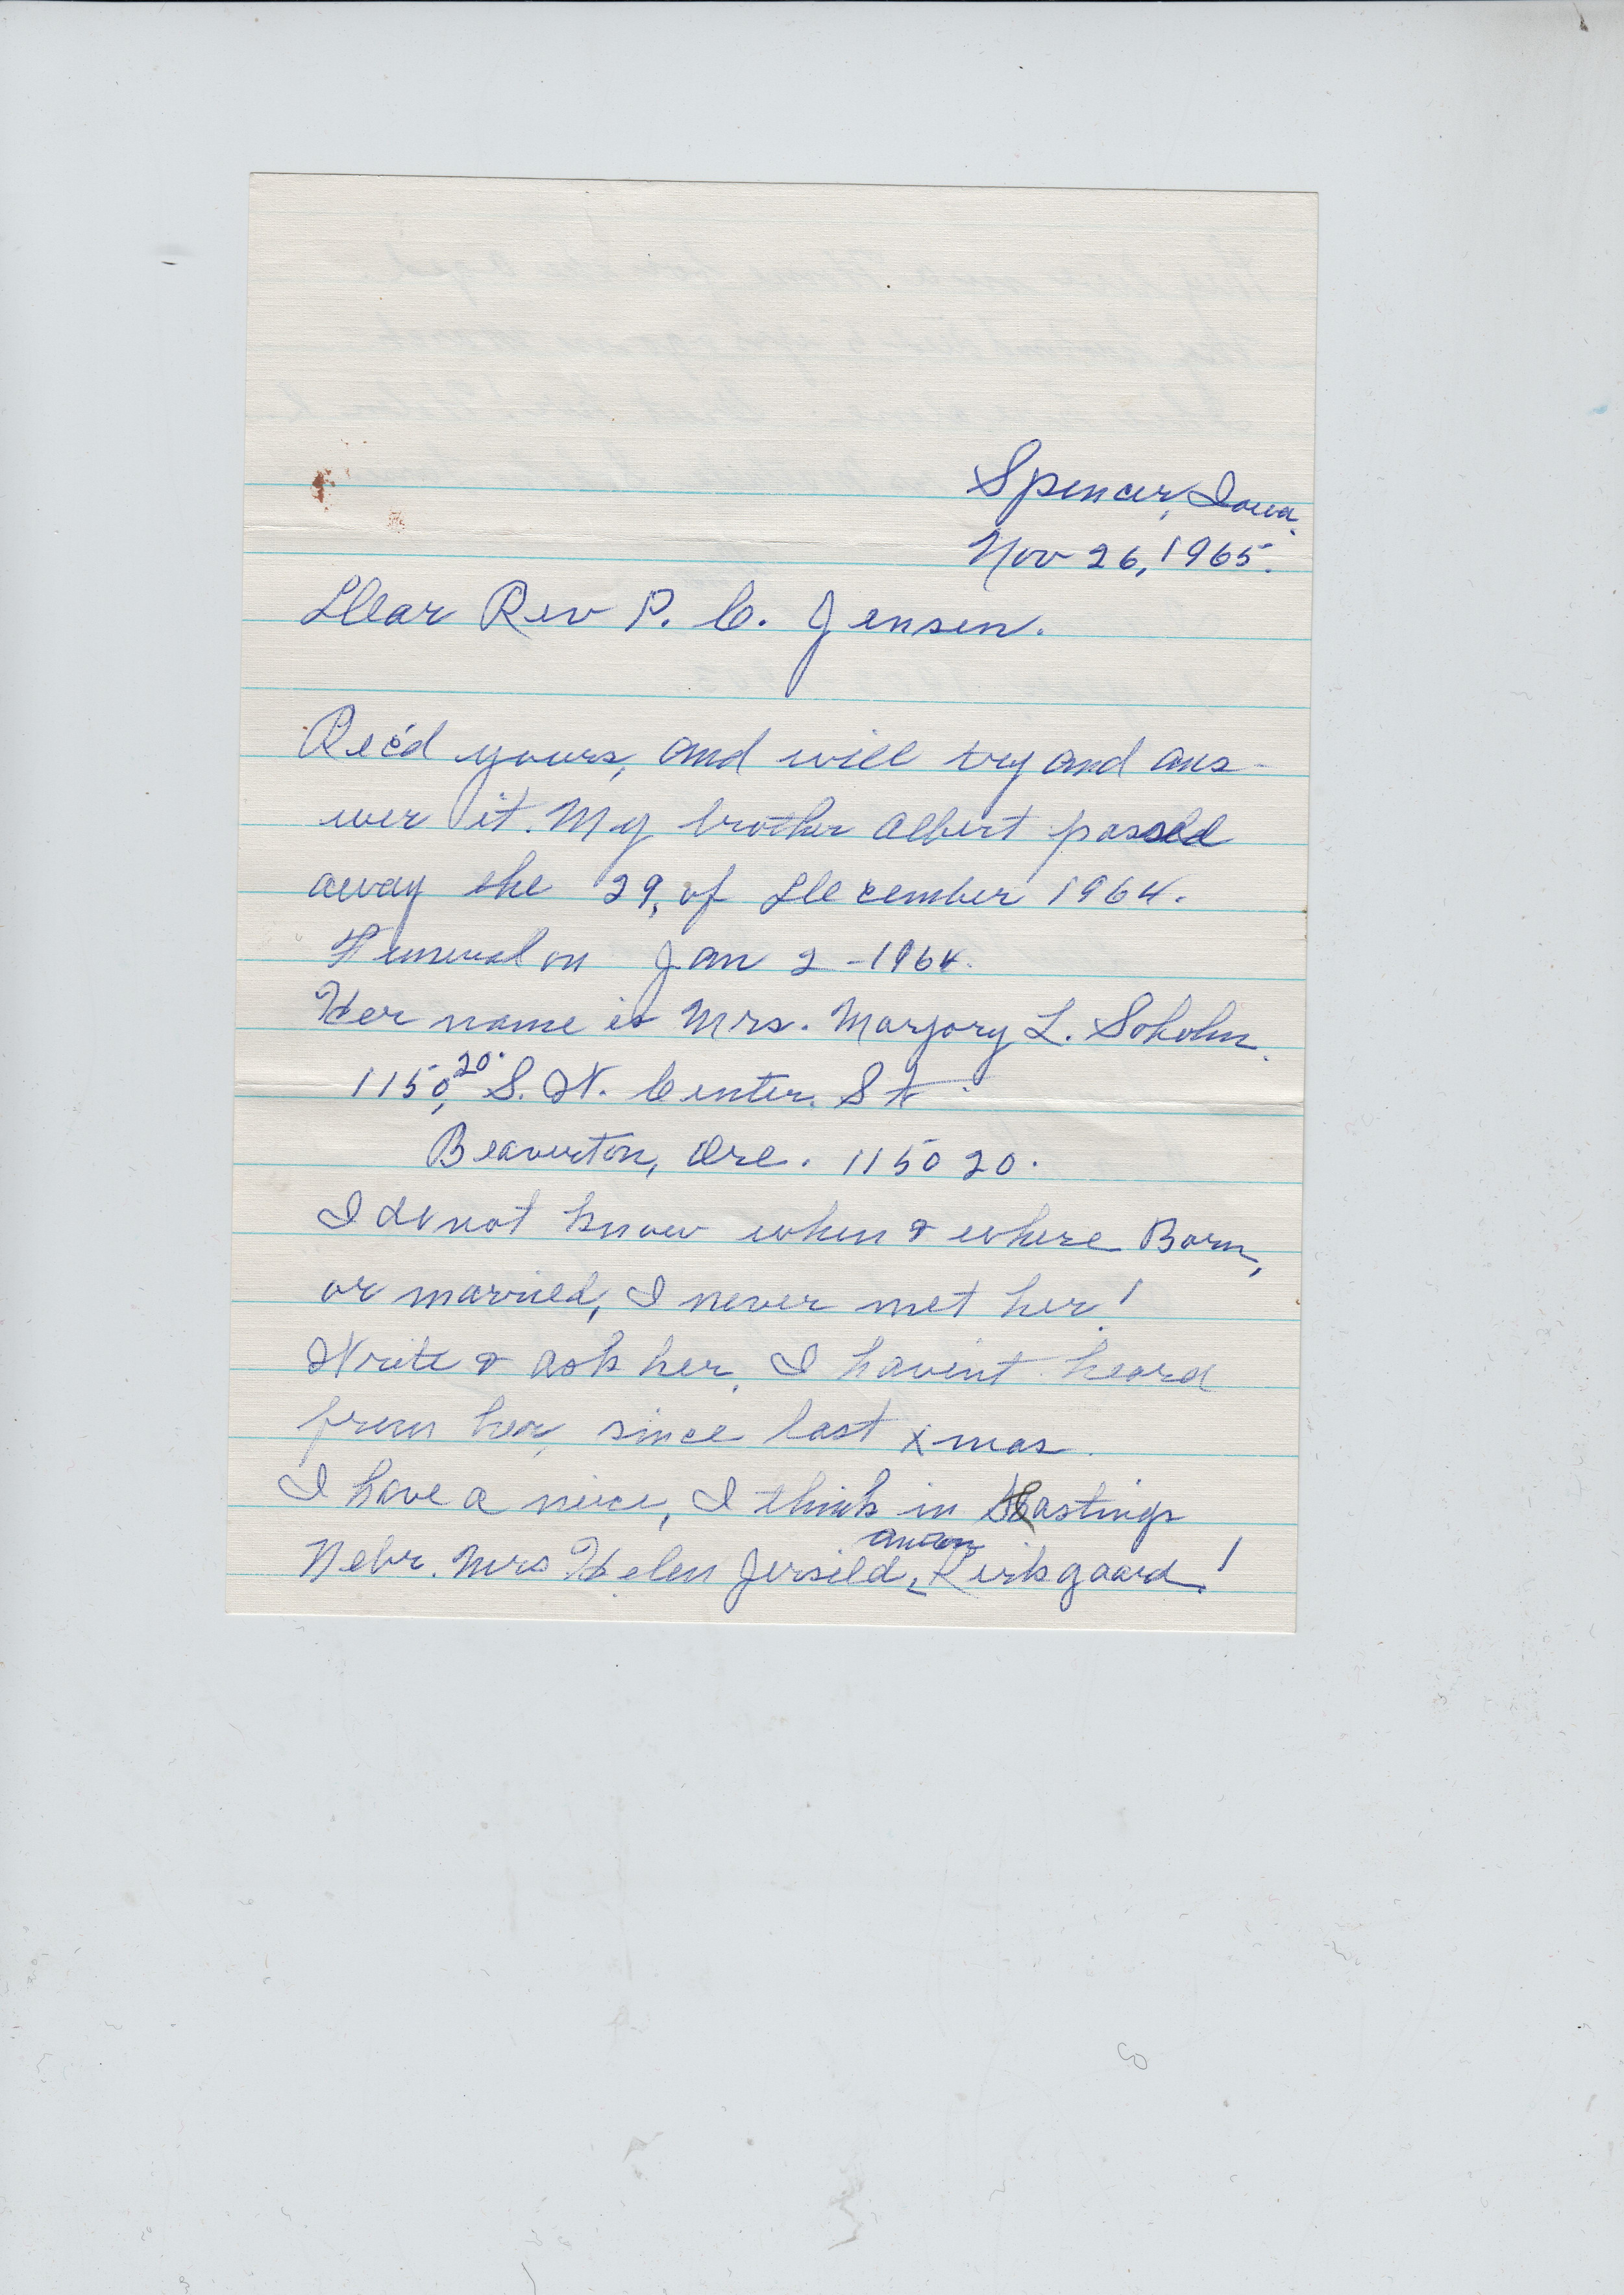 Spencer, Iowa.
Nov 26, 1965.
Dear Rev P. C. Jensen.
Rec'd yours, and will try and ans-
wer it. My brother Albert passed
away the 29, of December 1964.
Funeral on Jan 2 - 1964.
Her name is Mrs. Marjory L. Soholm.
1150,20. S. W. Center. St.
Beaverton, Ore. 115020.
I do not know when & where Born,
or married, I never met her!
Write & ask her. I havent heard
from her, since last xmas.
I have a niece, I think in Hastings
Nebr. Mrs Helen Jersild, Kirkgaard!